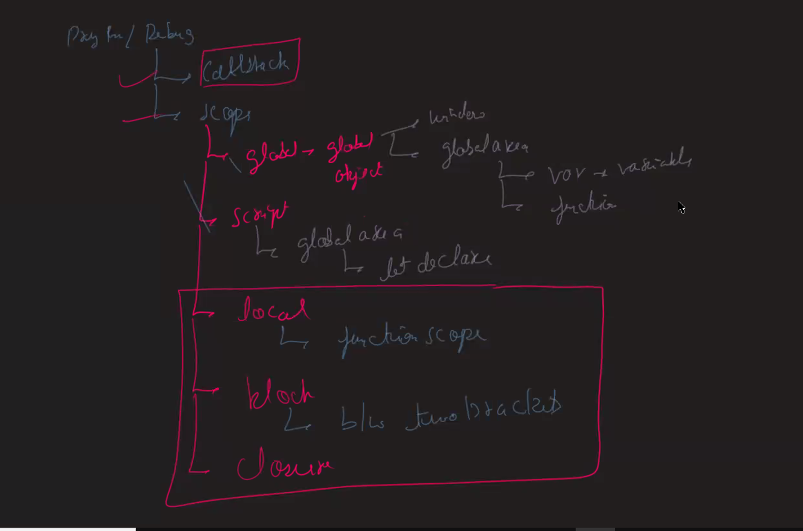 Debug
Callstack
scope
global → global object
window
global area
var → variable
function
script
global area
let declare
local
function scope
block
b/w two brackets
closure